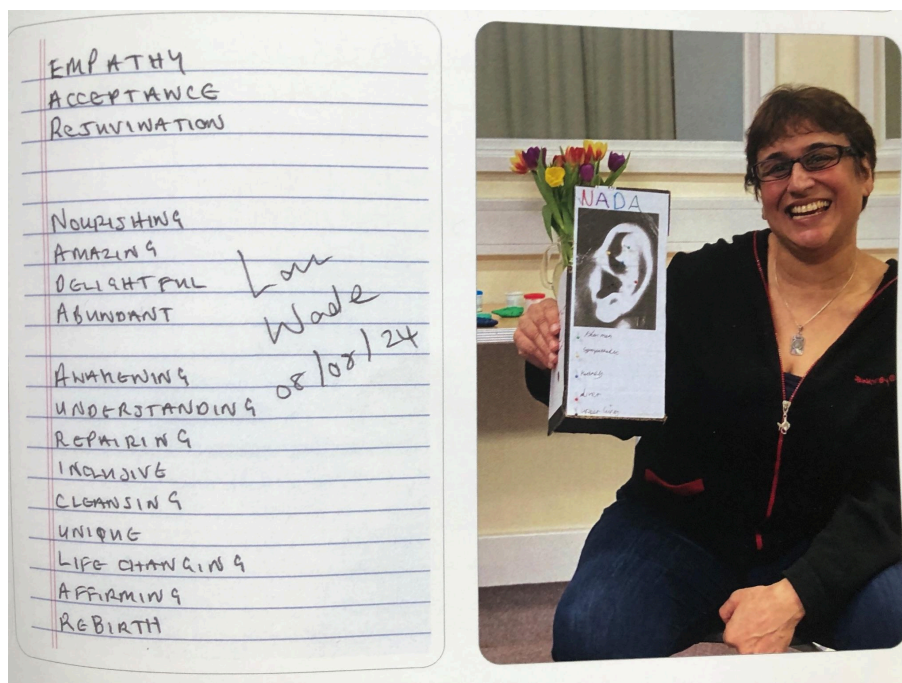 EMPATHY
ACCEPTANCE
REJUVINATION
NOURISHING
AMAZING
DELIGHTFUL
ABUNDANT
AWAKENING
UNDERSTANDING
REPAIRING
INCLUSIVE
CLEANSING
UNIQUE
LIFE CHANGING
AFFIRMING
REBIRTH
Lou
Wade
08/08/24
NADA
Shen men
Sympathetic
Kidney
Liver